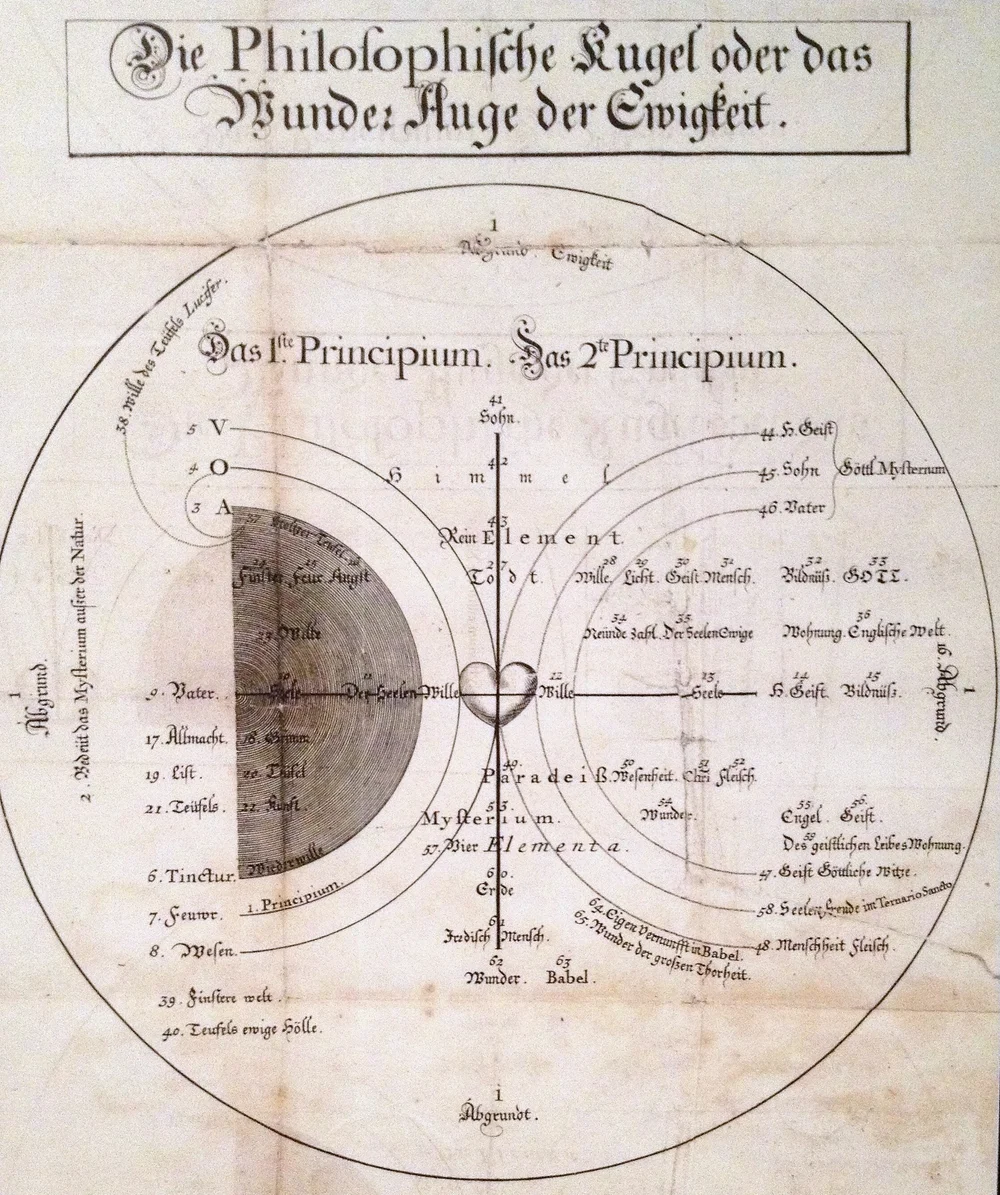 Die Philosophische Kugel oder das
Wunder Auge der Ewigkeit.
1
Abgrund. Ewigkeit
38. Wille des Teüfels Lucifer.
Das 1.ste Principium. Das 2te Principium.
41
Sohn.
5 V
44. H. Geist
42
H i m m e l
4 O
45. Sohn Göttl Mysterium
3 A
46. Vater
37 Stoltzer Teufel
43
Rein Element.
27 28 29 30 31 32 33
Finster Feur Angst
Todt. Wille. Licht. Geist Mensch. Bildnüß. GOTT.
34 35 36
Wille
Reinde Zahl. Der Seelen Ewige Wohnung. Englische Welt.
2. Bedeüt das Mysterium außer der Natur.
1
Abgrund.
10 11 12 13 14 15
9. Vater. Seele Der Seelen Wille Wille Seele H. Geist. Bildnüß.
16. Abgrund.
1
17. Allmacht. 18. Grimm
19. List. 20. Teüfel
49. 50 51 52
Paradeiß. Wesenheit. Chri Fleisch.
21. Teüfels. 22. Kunst.
53. 54 55 56.
Mysterium. Wunder. Engel. Geist.
57. Vier Elementa.
59
Des geistlichen Leibes Wohnung.
Wiederwille
6. Tinctur.
60.
Erde
47. Geist Göttliche Witze.
1. Principium.
7. Feuwr.
61
Irdisch Mensch.
58. Seelen Ende im Ternario Sancto
64. Eigen Vernunfft in Babel.
65. Wunder der großen Thorheit.
8. Wesen.
48. Menschheit Fleisch.
62 63
Wunder. Babel.
39. Finstere welt.
40. Teufels ewige Hölle.
1
Abgrundt.